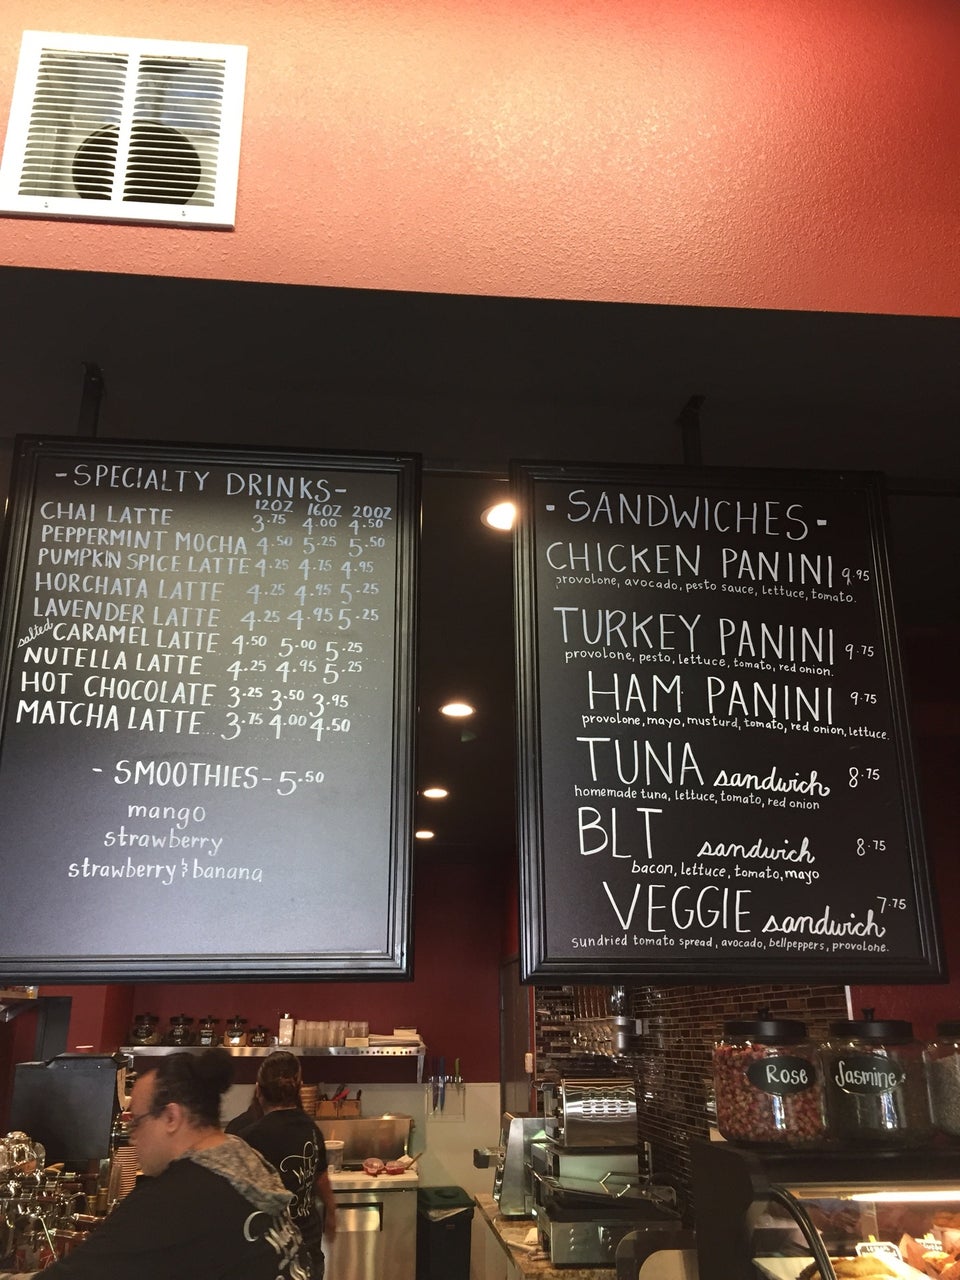 -SPECIALTY DRINKS-
12OZ 16OZ 20OZ
CHAI LATTE 3.75 4.00 4.50
PEPPERMINT MOCHA 4.50 5.25 5.50
PUMPKIN SPICE LATTE 4.25 4.75 4.95
HORCHATA LATTE 4.25 4.95 5.25
LAVENDER LATTE 4.25 4.95 5.25
salted CARAMEL LATTE 4.50 5.00 5.25
NUTELLA LATTE 4.25 4.95 5.25
HOT CHOCOLATE 3.25 3.50 3.95
MATCHA LATTE 3.75 4.00 4.50
- SMOOTHIES - 5.50
mango
strawberry
strawberry & banana
- SANDWICHES -
CHICKEN PANINI 9.95
provolone, avocado, pesto sauce, lettuce, tomato.
TURKEY PANINI 9.75
provolone, pesto, lettuce, tomato, red onion.
HAM PANINI 9.75
provolone, mayo, musturd, tomato, red onion, lettuce.
TUNA sandwich 8.75
homemade tuna, lettuce, tomato, red onion
BLT sandwich 8.75
bacon, lettuce, tomato, mayo
VEGGIE sandwich 7.75
sundried tomato spread, avocado, bellpeppers, provolone.
Rose
Jasmine